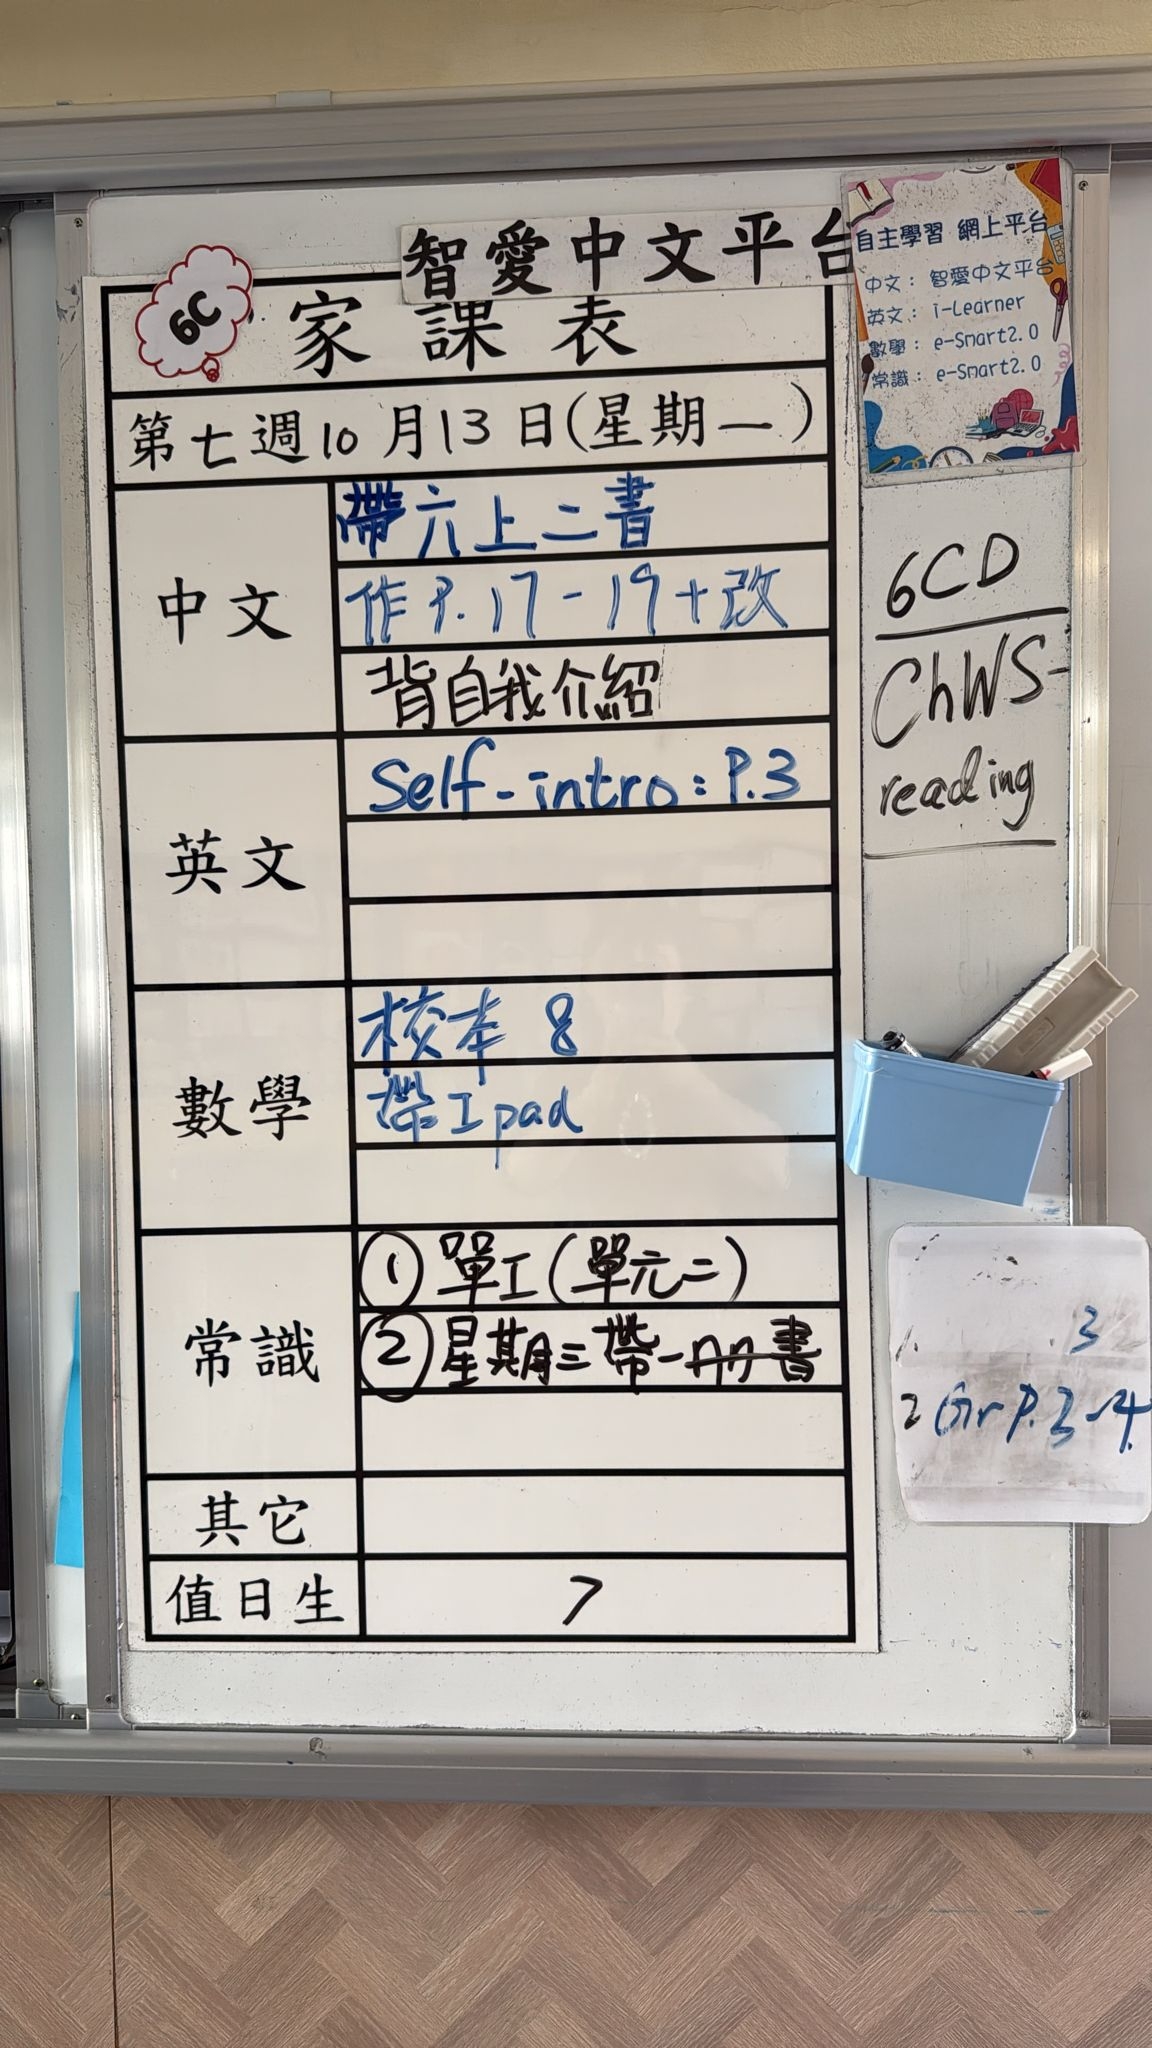 智愛中文平台
6C
家課表
第七週10月13日(星期一)
中文
帶六上二書
作P.17-19+改
背自我介紹
英文
Self-intro:P.3
數學
校本 8
帶Ipad
常識
① 單工(單元二)
② 星期三帶一冊書
其它
值日生
7
自主學習 網上平台
中文:智愛中文平台
英文:i-Learner
數學:e-Smart2.0
常識:e-Smart2.0
6CD
ChWS-
reading
1. 3
2 Gr P.3-4